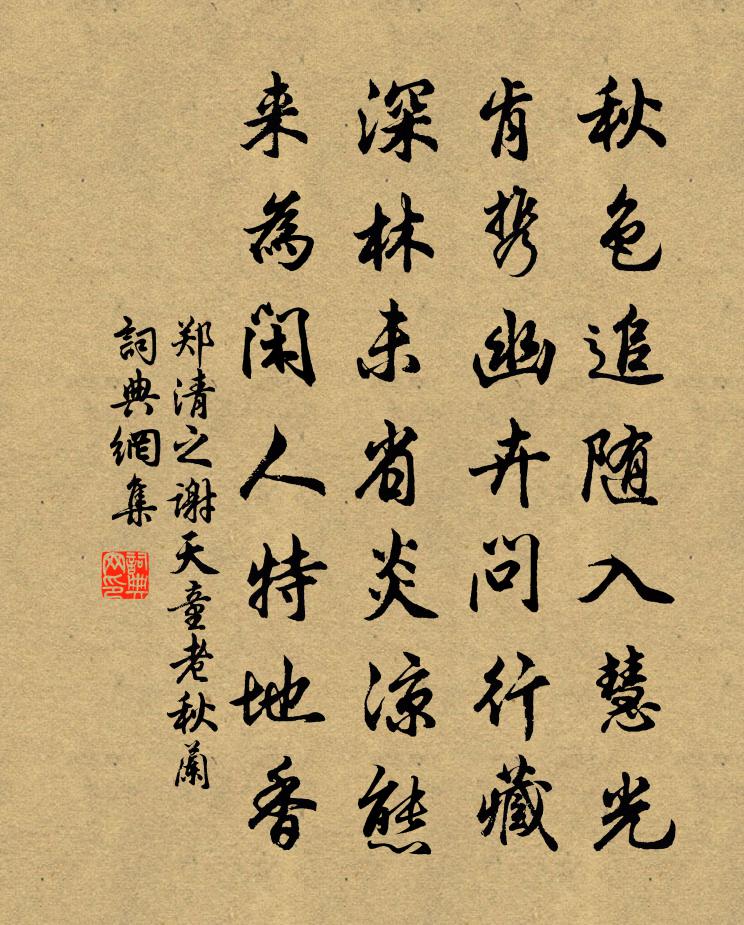 秋色追随入慧光
肯携幽卉问行藏
深林未省炎凉態
来為闲人特地香
郑清之谢天童老秋蘭
詞典網集
詞典網印